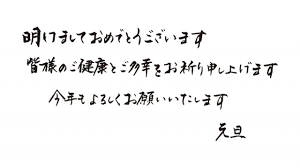 明けましておめでとうございます
皆様のご健康とご多幸をお祈り申し上げます
今年もよろしくお願いいたします
元旦